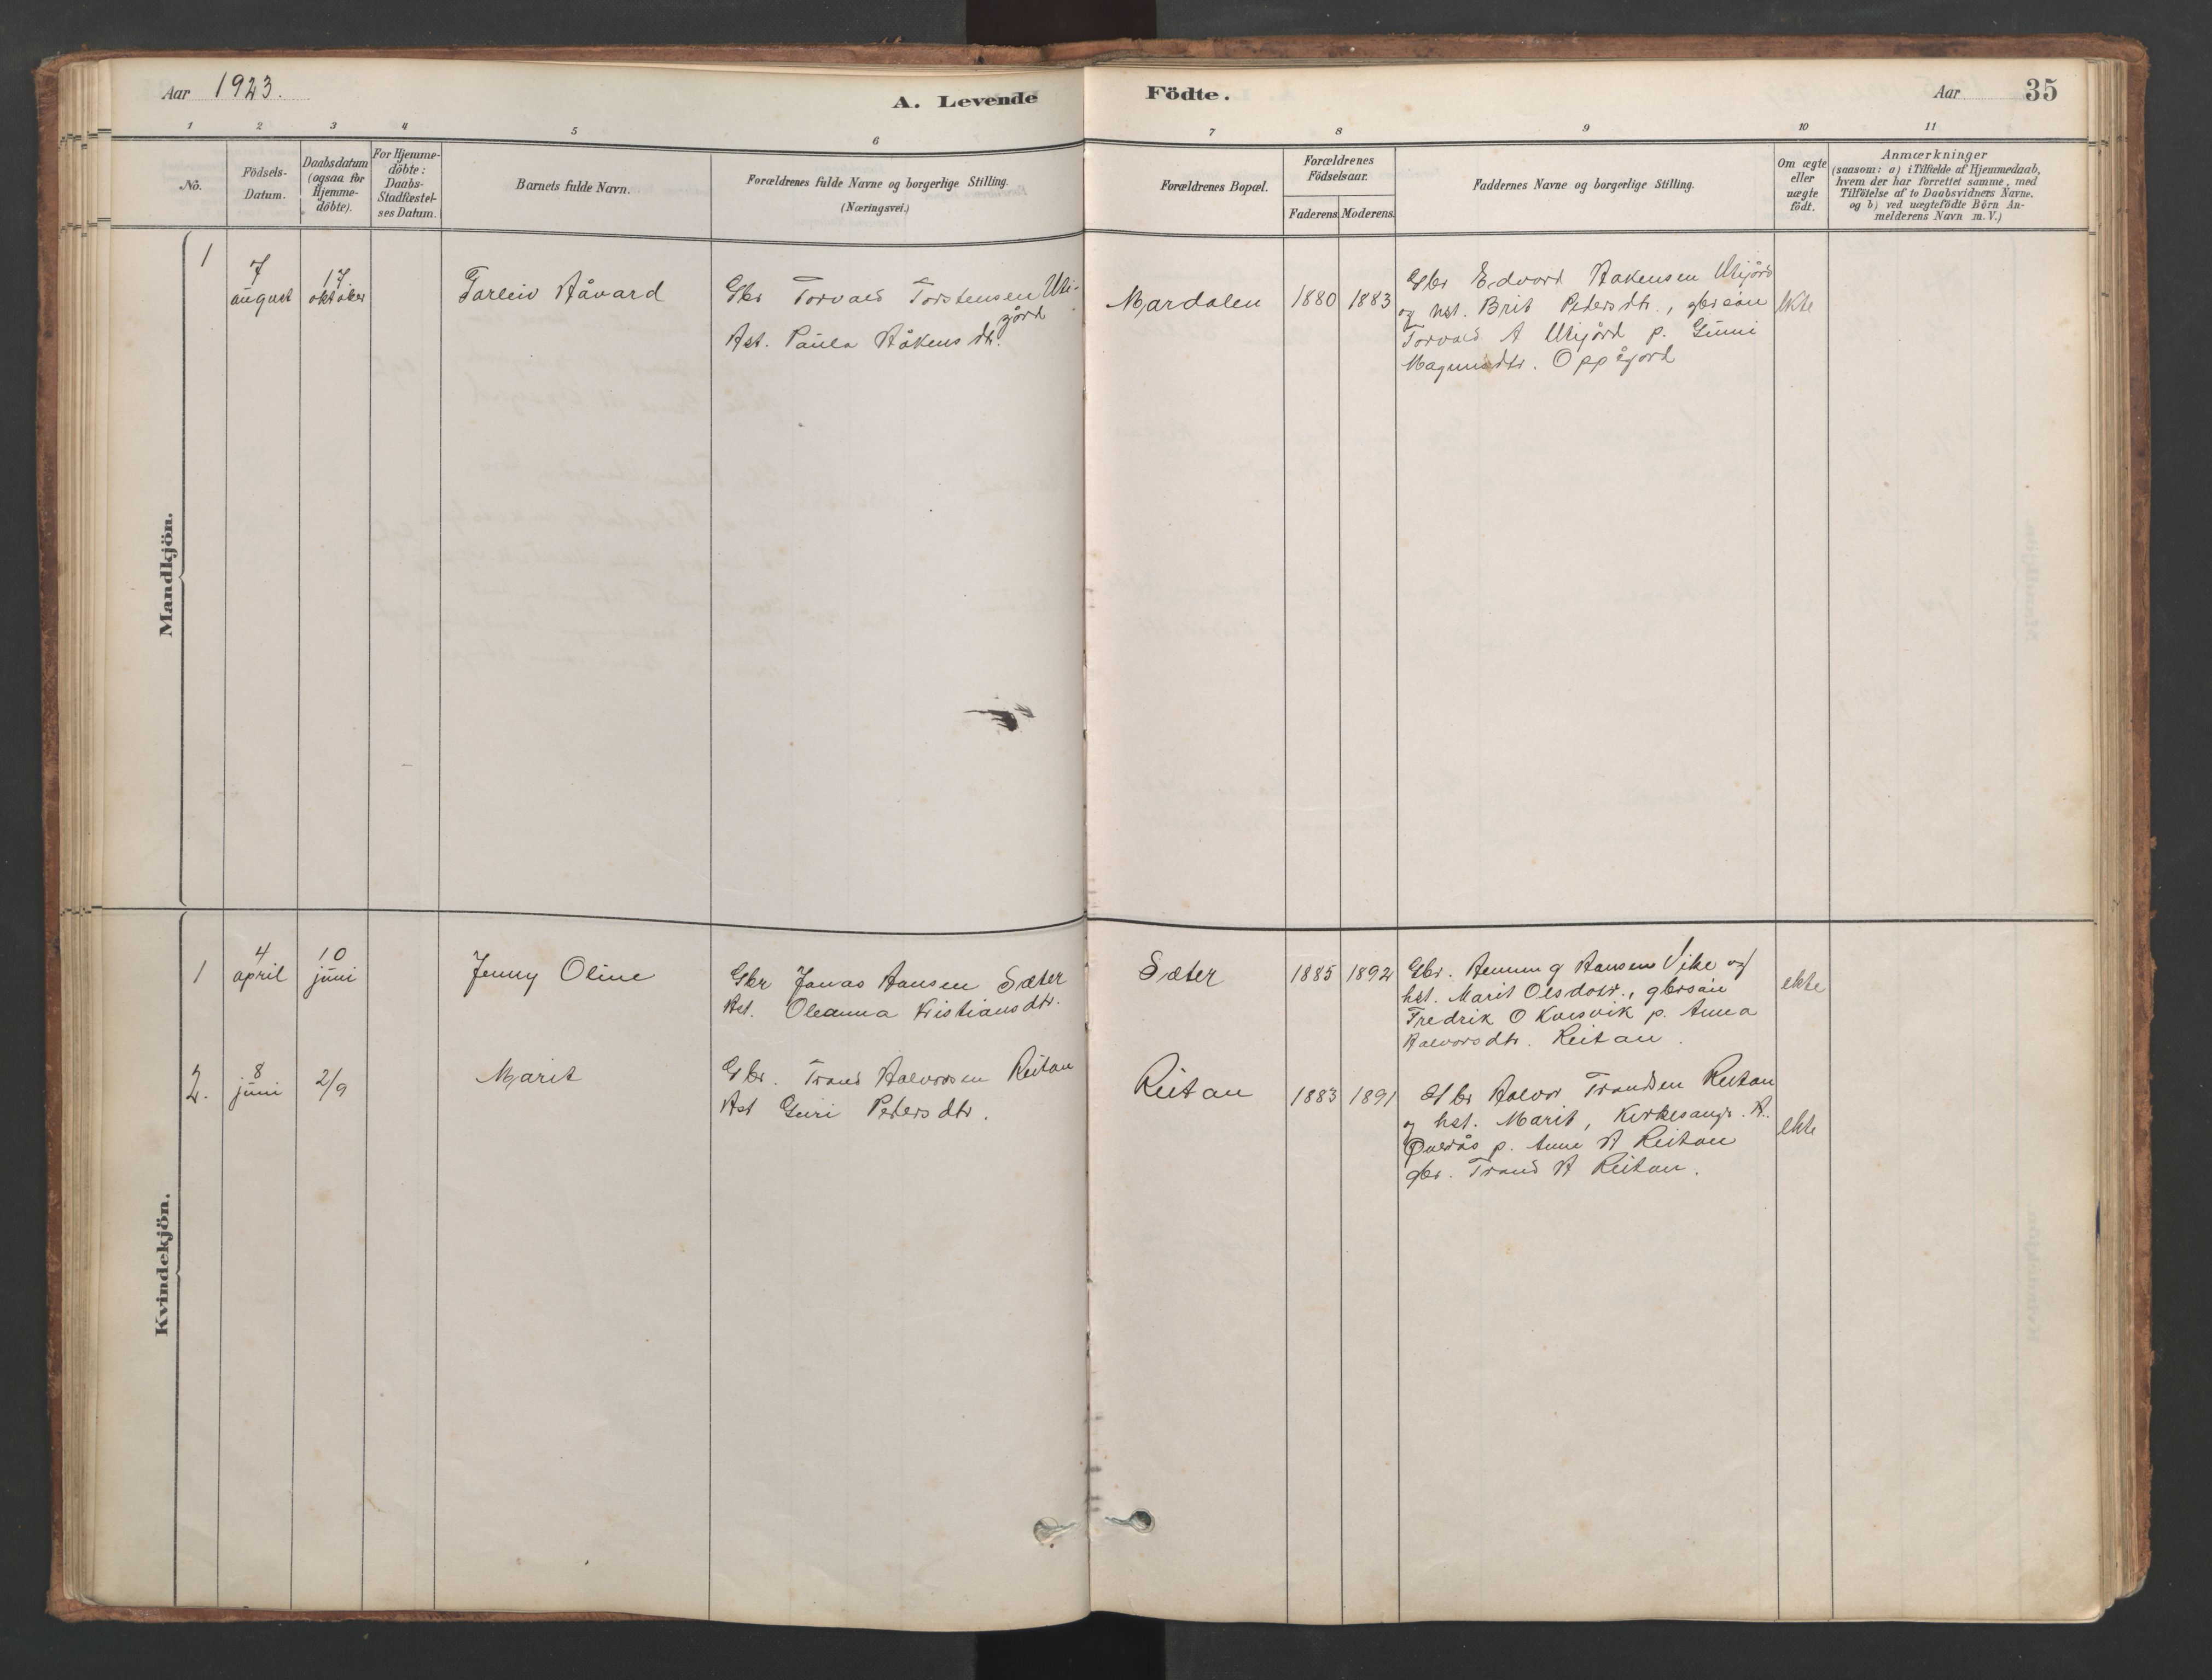 Aar 1923.
A. Levende
Födte.
Aar
35
1 2 3 4 5 6 7 8 9 10 11
No.
Födsels-
Datum.
Daabsdatum
(ogsaa for
Hjemme-
döbte).
For Hjemme-
döbte:
Daabs-
Stadfæstel-
ses Datum.
Barnets fulde Navn.
Forældrenes fulde Navne og borgerlige Stilling.
(Næringsvei.)
Forældrenes Bopæl.
Forældrenes
Födselsaar.
Faderens. Moderens.
Faddernes Navne og borgerlige Stilling.
Om ægte
eller
uægte
födt.
Anmærkninger
(saasom: a) i Tilfælde af Hjemmedaab,
hvem der har forrettet samme, med
Tilföielse af to Daabsvidners Navne.
og b) ved uægtefödte Börn An-
melderens Navn m. V.)
Mandkjön.
1
7
august
17
oktober
Torleiv Håvard
Gbr Torvald Torstensen Uti-
gård
Hst. Paula Håkensdtr.
Mardalen
1880
1883
Gbr Edvard Hakensen Utigård
og hst. Brit Petersdtr., gbrsøn
Torvald A Utigård p. Gunni
Magnusdtr. Oppigård
ekte
Kvindekjön.
1
4
april
10
juni
Jenny Oline
Gbr Jonas Hansen Sæter
Hst. Oleanna Kristiansdtr.
Sæter
1885
1892
Gbr. Hemming Hansen Vike og
hst. Marit Olsdotr., gbrsøn
Fredrik O Kvisvik p. Anna
Halvorsdtr. Reitan.
ekte
2.
8
juni
2/9
Marit
Gbr. Trond Halvorsen Reitan
Hst Guri Petersdtr.
Reitan
1883
1891
Gbr Halvor Trondsen Reitan
og hst. Marit, Kirkesangr. A.
Øverås p. Anne H Reitan
gbr. Trond H Reitan.
ekte